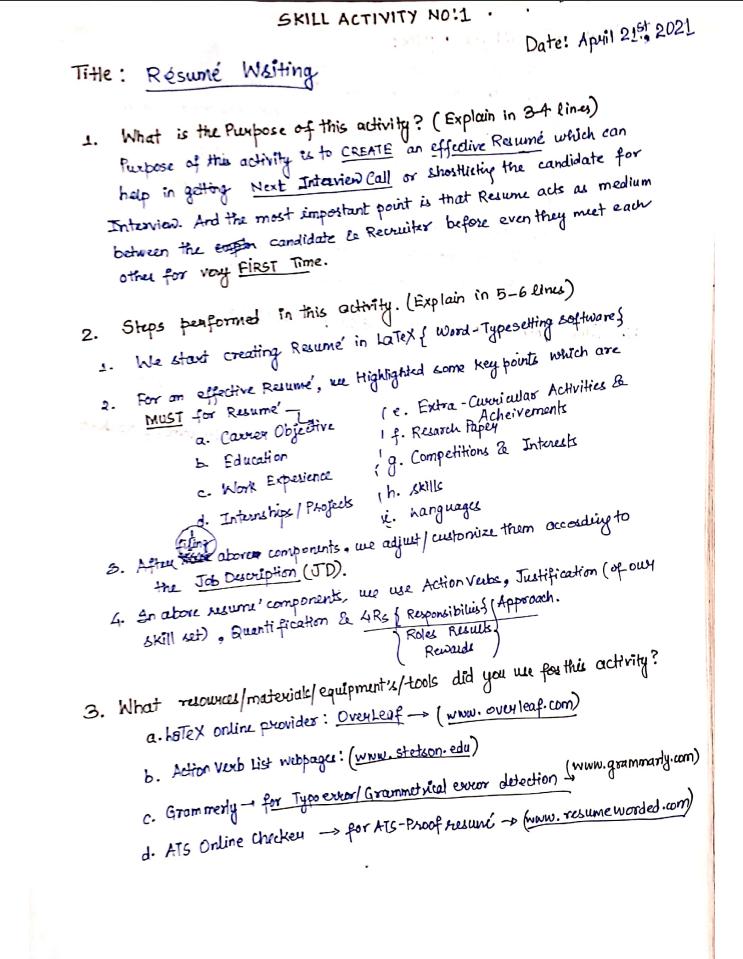 SKILL ACTIVITY NO:1
Date: April 21st, 2021
Title: Résumé Writing
1. What is the Purpose of this activity? (Explain in 3-4 lines)
Purpose of this activity is to CREATE an effective Resumé which can
help in getting Next Interview Call or shortlisting the candidate for
Interview. And the most important point is that Resume acts as medium
between the candidate & Recruiter before even they meet each
other for very FIRST Time.
2. Steps performed in this activity. (Explain in 5-6 lines)
1. We start creating Resume' in LaTeX { Word-Typesetting software}
2. For an effective Resume', we Highlighted some key points which are
MUST for Resume'
a. Career Objective
b. Education
c. Work Experience
d. Internships / Projects
e. Extra-Curricular Activities &
Acheivements
f. Resarch Paper
g. Competitions & Interests
h. skills
i. Languages
3. After filling above components, we adjust/customize them according to
the Job Description (JD).
4. In above resume' components, we use Action Verbs, Justification (of our
skill set), Quantification & 4Rs { Responsibilities} Approach.
Roles Results
Rewards
3. What resources/materials/equipment's/tools did you use for this activity?
a. LaTeX online provider: OverLeaf → (www.overleaf.com)
b. Action Verb List webpages: (www.stetson.edu)
c. Grammerly → for Typo error/ Grammetrical error detection → (www.grammarly.com)
d. ATS Online Checker → for ATS-Proof resume' → (www.resumeworded.com)